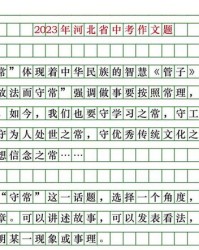 2023年河北省中考作文题
常”体现着中华民族的智慧《管子》
故法而守常”强调做事要按照常理，
。如今，我们也要守学习之常，守工
守为人处世之常，守优秀传统文化之
想信念之常……
“守常”这一话题，选择一个角度，
章。可以讲述故事，可以发表看法，
明某一现象或事理。